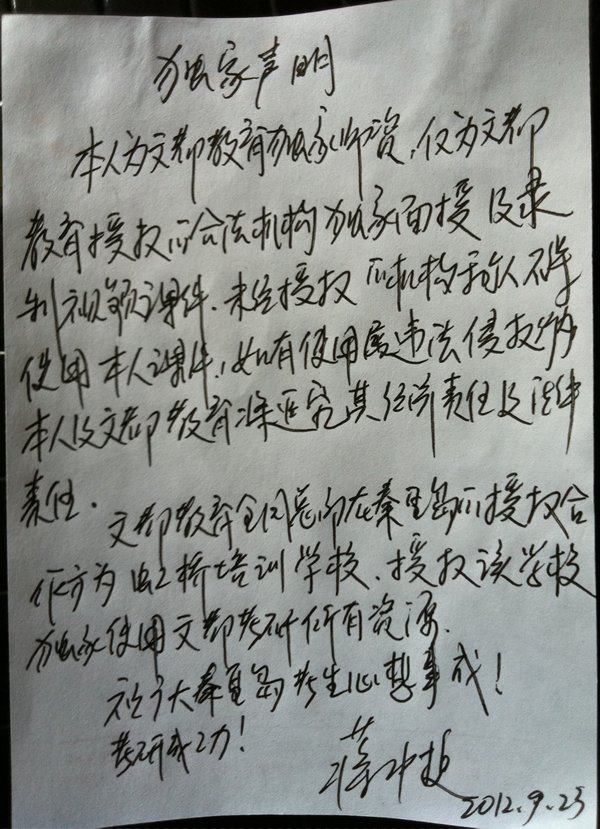 独家声明
本人为文都教育独家师资,仅为文都
教育授权的合法机构独家面授及录
制视频课件.未经授权的机构和个人不得
使用本人课件,如有使用属违法侵权行为
本人及文都教育将追究其经济责任及法律
责任.
文都教育全国总部在秦皇岛的授权合
作方为虹桥培训学校、授权该学校
独家使用文都考研所有资源.
祝广大秦皇岛考生心想事成!
考研成功!
蒋中挺
2012.9.25